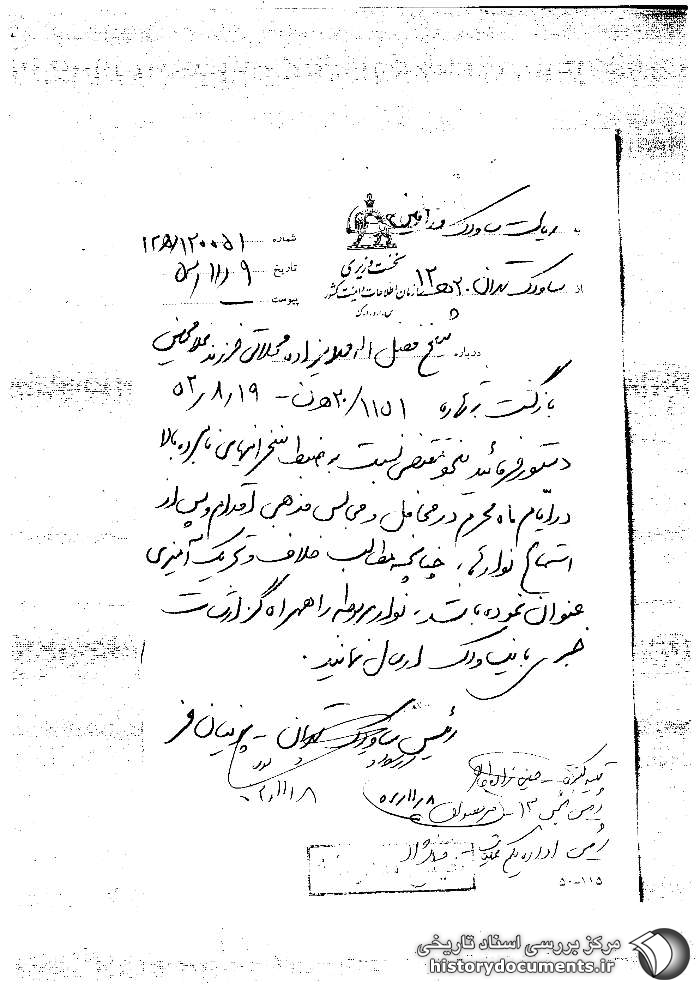 به ریاست ساواک
شماره
نخست وزیری
تاریخ ۹ / ۱۱ /
از ساواک تهران ۲۰ ه‍ ۱۲ سازمان اطلاعات و امنیت کشور
پیوست
درباره شیخ فضل اله مهدیزاده محلاتی فرزند غلامحسین
بازگشت بشماره ۱۱۵۱ / ۲۰ ه‍ - ۱۹ / ۸ / ۵۲
دستور فرمائید بنحو مقتضی نسبت به ضبط سخنرانیهای نامبرده بالا
در ایام ماه محرم در محافل و مجالس مذهبی اقدام و پس از
استماع نوارها، چنانچه مطالب خلاف و تحریک آمیزی
عنوان نموده باشد، نوار مربوطه را همراه گزارشات
خبری باین ساواک ارسال نمایند.
رئیس ساواک تهران - پرنیان فر
تهیه کننده
رئیس بخش ۱۲
رئیس اداره یکم عملیات
۵۰-۱۱۵
مرکز بررسی اسناد تاریخی
historydocuments.ir